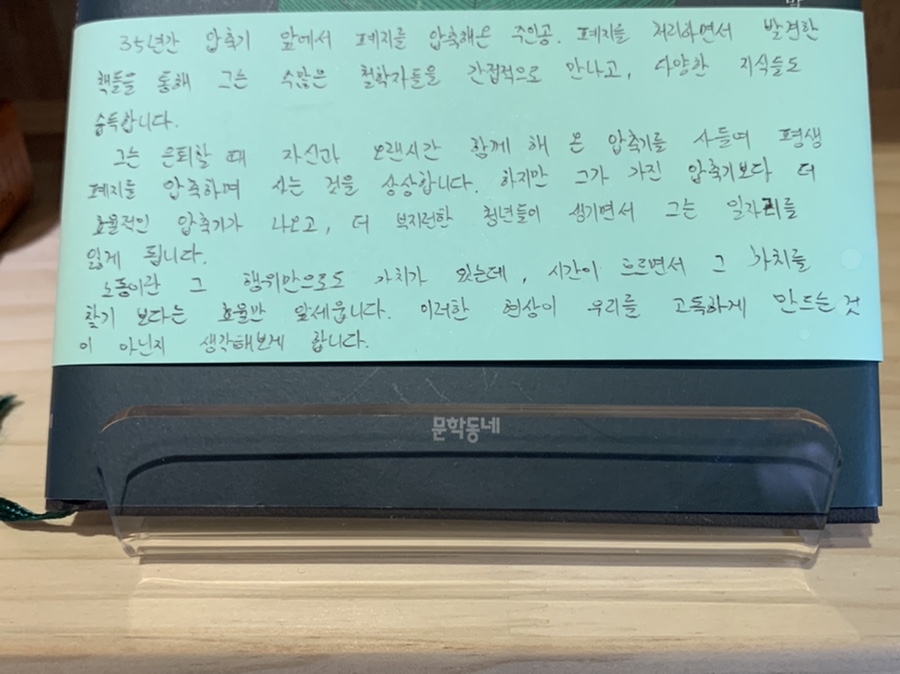 35년간 압축기 앞에서 폐지를 압축해온 주인공. 폐지를 처리하면서 발견한
책들을 통해 그는 수많은 철학자들을 간접적으로 만나고, 다양한 지식들도
습득합니다.
그는 은퇴할 때 자신과 오랜시간 함께 해 온 압축기를 사들여 평생
폐지를 압축하며 사는 것을 상상합니다. 하지만 그가 가진 압축기보다 더
효율적인 압축기가 나오고, 더 부지런한 청년들이 생기면서 그는 일자리를
잃게 됩니다.
노동이란 그 행위만으로도 가치가 있는데, 시간이 흐르면서 그 가치를
찾기 보다는 효율만 앞세웁니다. 이러한 현상이 우리를 고독하게 만드는 것
이 아닌지 생각해보게 합니다.
문학동네